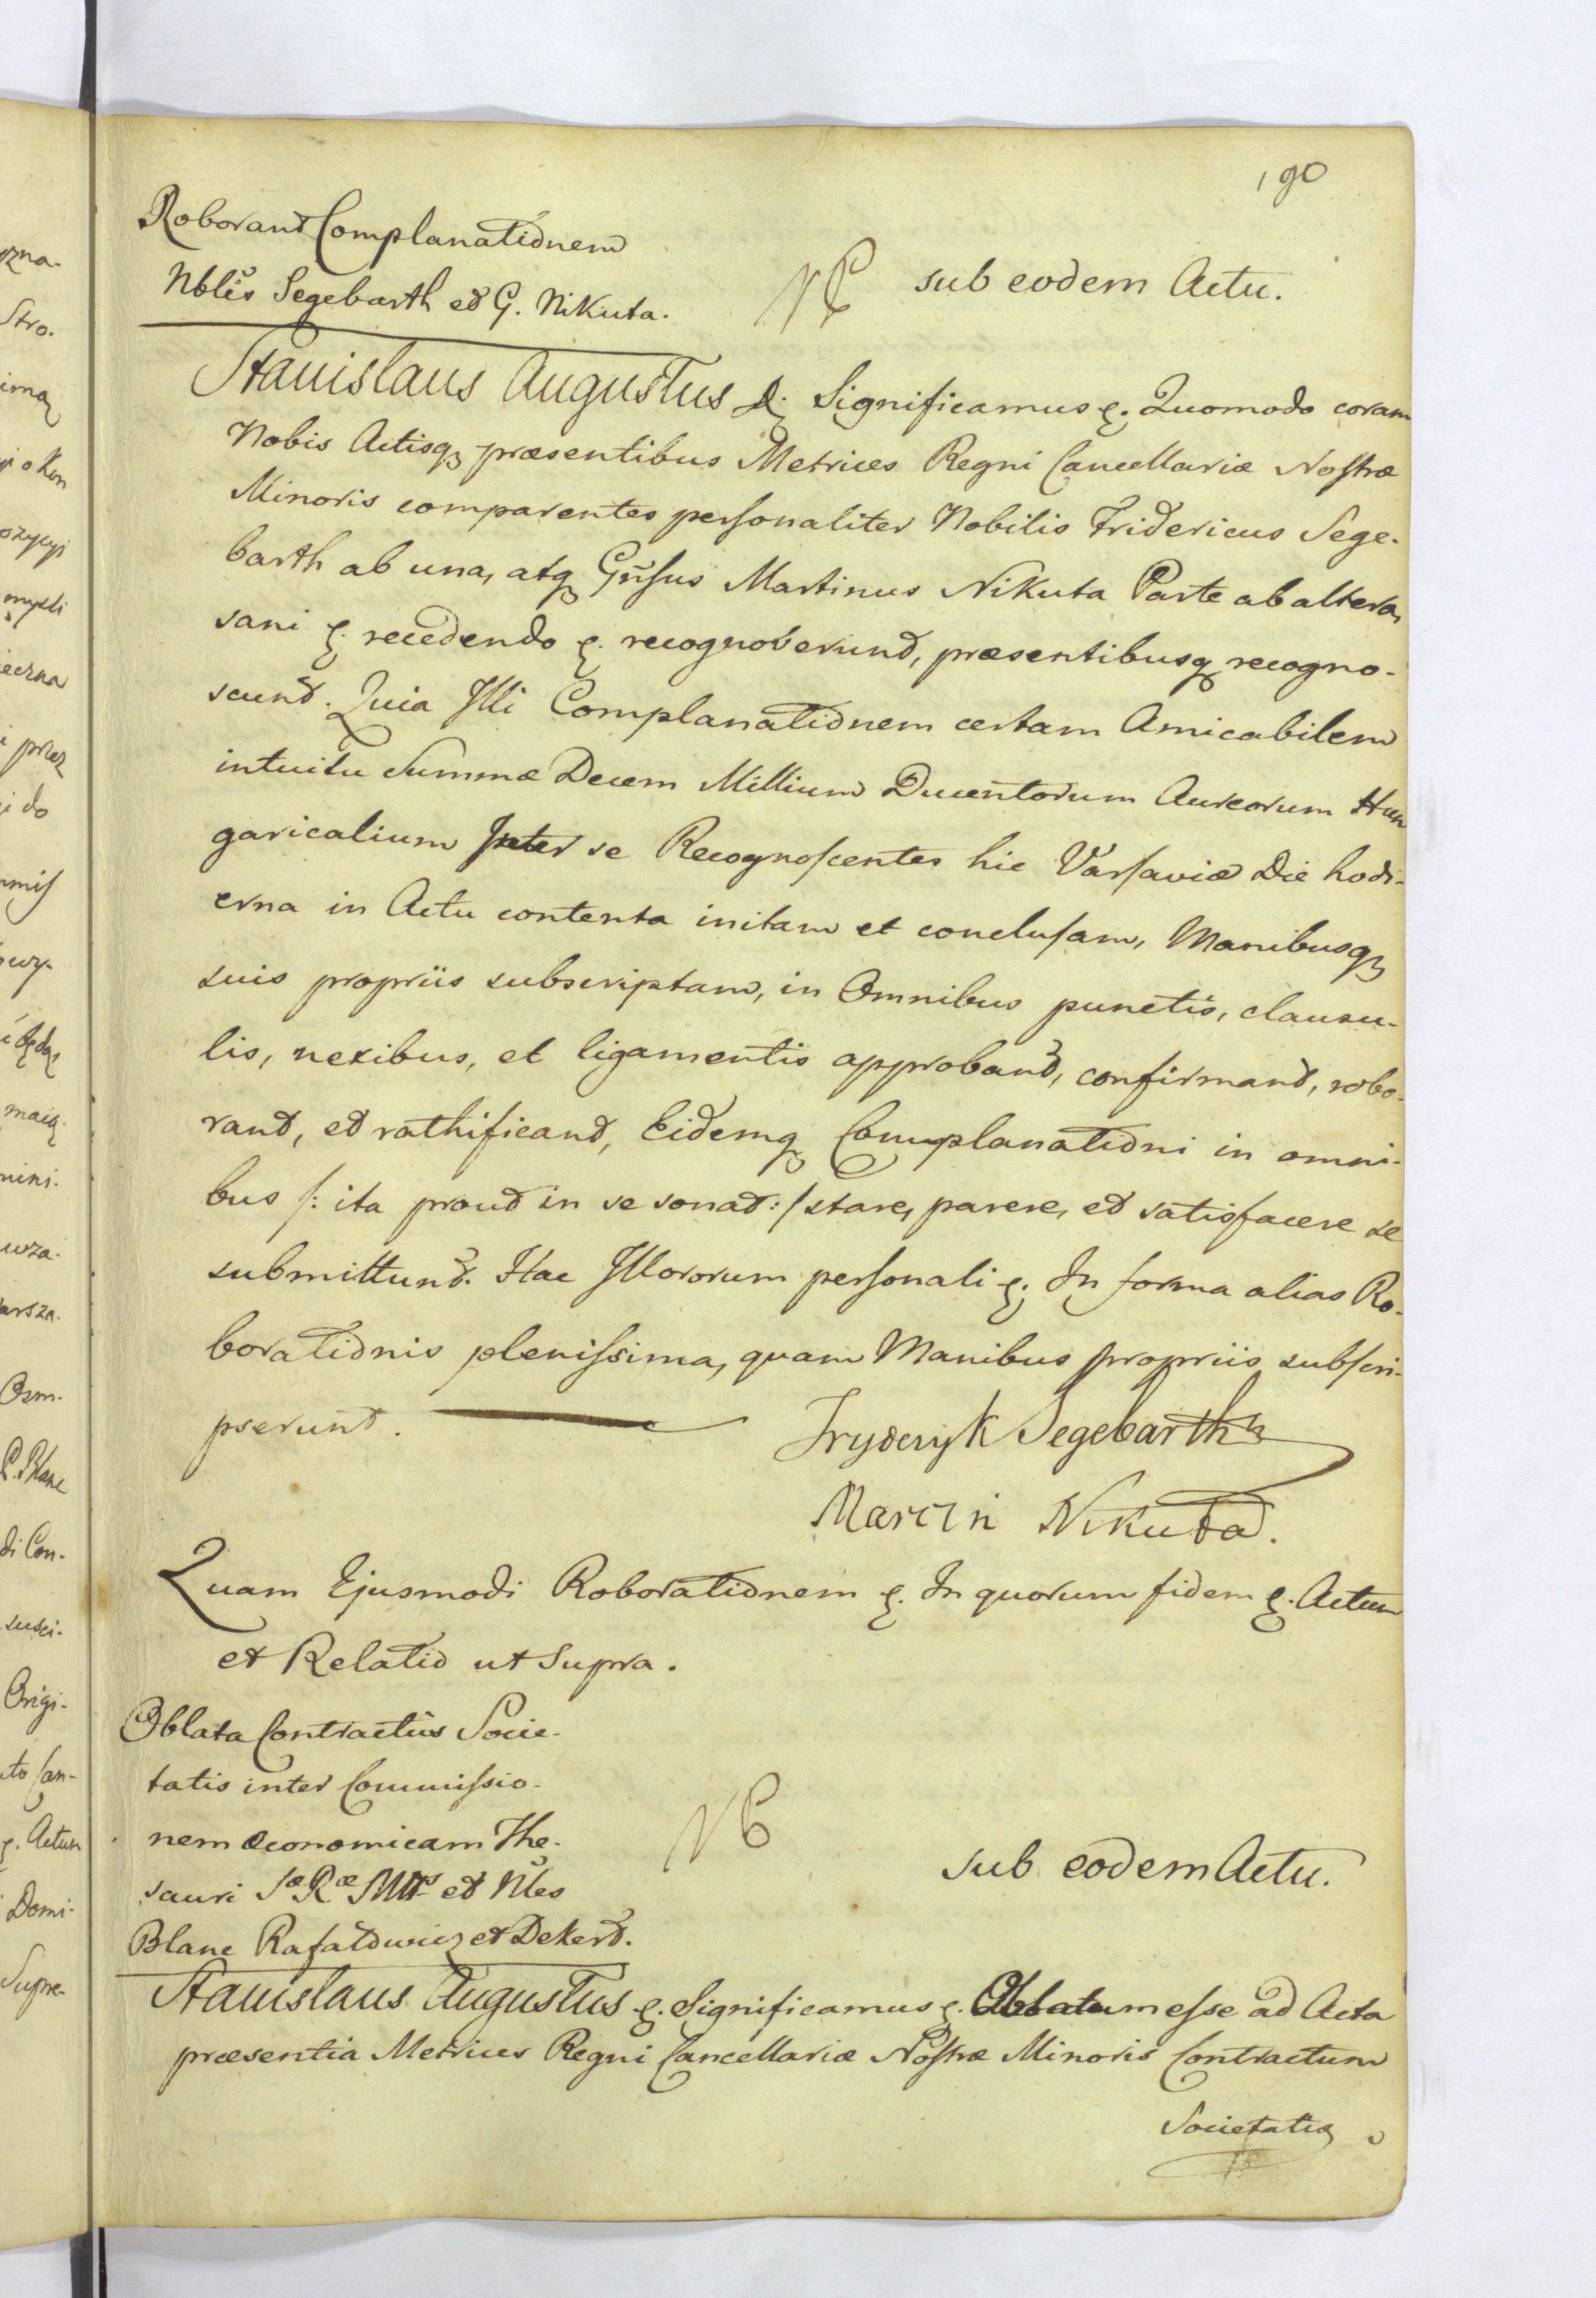 190
Roborant Complanationem
Nbles Segebarth et G. Nikuta.
sub eodem Actu.
Stanislaus Augustus &. Significamus &. Quomodo coram
Nobis Actisq præsentibus Metrices Regni Cancellariæ Nostræ
Minoris comparentes personaliter Nobilis Fridericus Sege-
barth ab una, atq Gnsus Martinus Nikuta Parte ab altera,
sani &. recedendo &. recognoverunt, præsentibusq recogno-
scunt. Quia Illi Complanationem certam Amicabilem
intuitu Summæ Decem Millium Ducentorum Aureorum Hun
garicalium Inter se Recognoscentes hic Varsaviæ Die hodi-
erna in Actu contenta initam et conclusam, Manibusq
suis propriis subscriptam, in Omnibus punctis, clausu-
lis, nexibus, et ligamentis approbant, confirmant, robo-
rant, et rathificant, Eidemq Complanationi in omni-
bus /: ita prout in se sonat :/ stare, parere, et satisfacere se
submittunt. Hac Illororum personali &. In forma alias Ro-
borationis plenissima, quam Manibus propriis subscri-
pserunt.
Fryderyk Segebarth
Marcin Nikuta.
Quam Ejusmodi Roborationem &. In quorum fidem &. Actum
et Relatio ut Supra.
Oblata Contractûs Socie-
tatis inter Commissio-
nem œconomicam The-
sauri Sæ Ræ Mttis et Nles
Blanc Rafałowicz et Dekert.
sub eodem Actu.
Stanislaus Augustus &. Significamus &. Oblatum esse ad Acta
præsentia Metrices Regni Cancellariæ Nostræ Minoris Contractum
Societatis